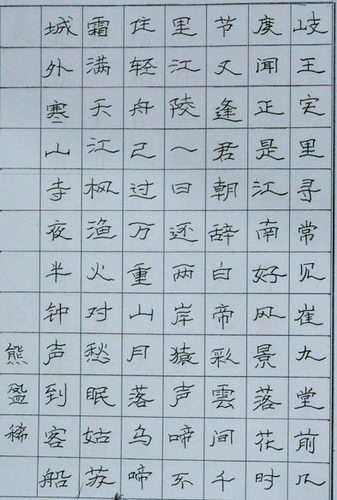 岐王宅里寻常见崔九堂前几
度闻正是江南好风景落花时
节又逢君朝辞白帝彩雲间千
里江陵一日还两岸猿声啼不
住轻舟已过万重山月落乌啼
霜满天江枫渔火对愁眠姑苏
城外寒山寺夜半钟声到客船
熊盈稀